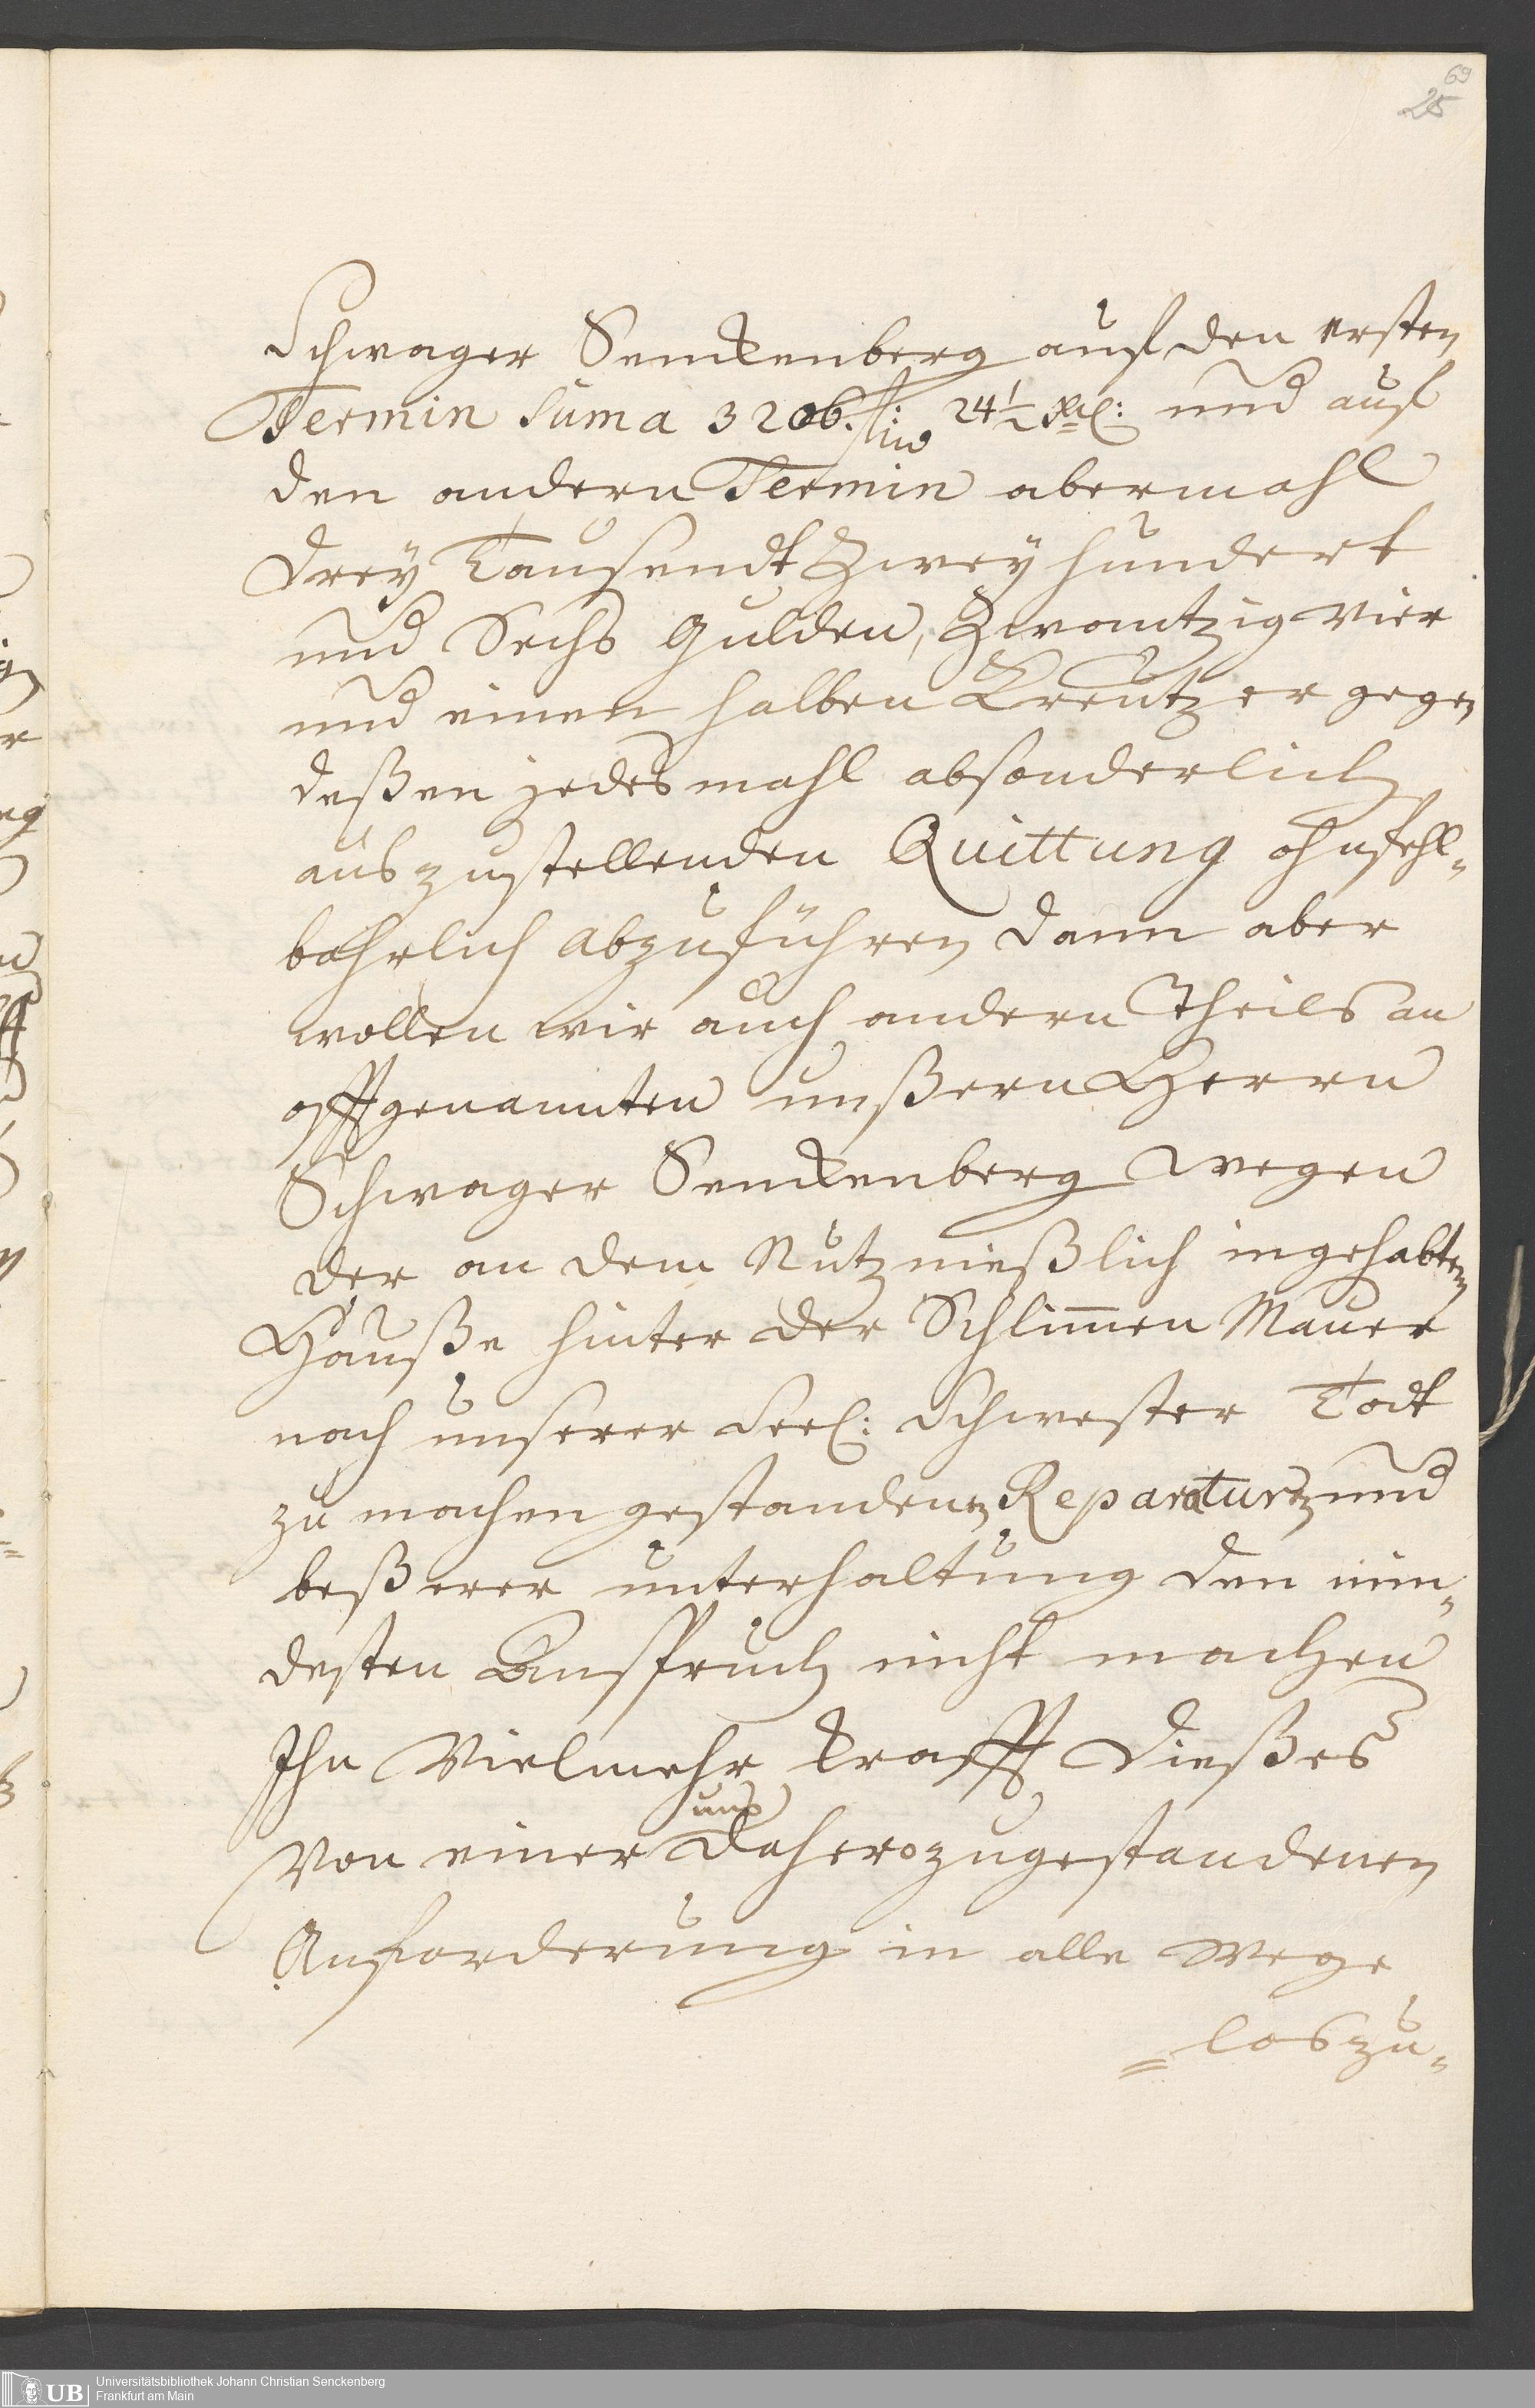 69
25
Schwager Senckenberg auf den ersten
Termin Suma 3206. fl: 24½ Xer: und auf
den andern Termin abermahl
Drey Tausendt Zweyhundert
und Sechs Gulden, Zwantzig vier
und einen halben Kreutzer gegen
deßen jedesmahl absonderlich
auszustellenden Quittung ohnfehl-
bahrlich abzuführen dann aber
wollen wir auch andern Theils an
offtgenannten unßern Herrn
Schwager Senckenberg wegen
der an dem Nutznießlich ingehabten
Hauße hinter der Schlimmen Mauer
nach unserer Seel: Schwester Todt
zu machen gestandenen Reparaturen und
beßerer unterhaltung den min-
desten Anspruch nicht machen
Ihn Vielmehr krafft Dießes
uns
Von einer Dahero zugestandenen
Anforderung in alle Wege
= loszu-
UB
Universitätsbibliothek Johann Christian Senckenberg
Frankfurt am Main